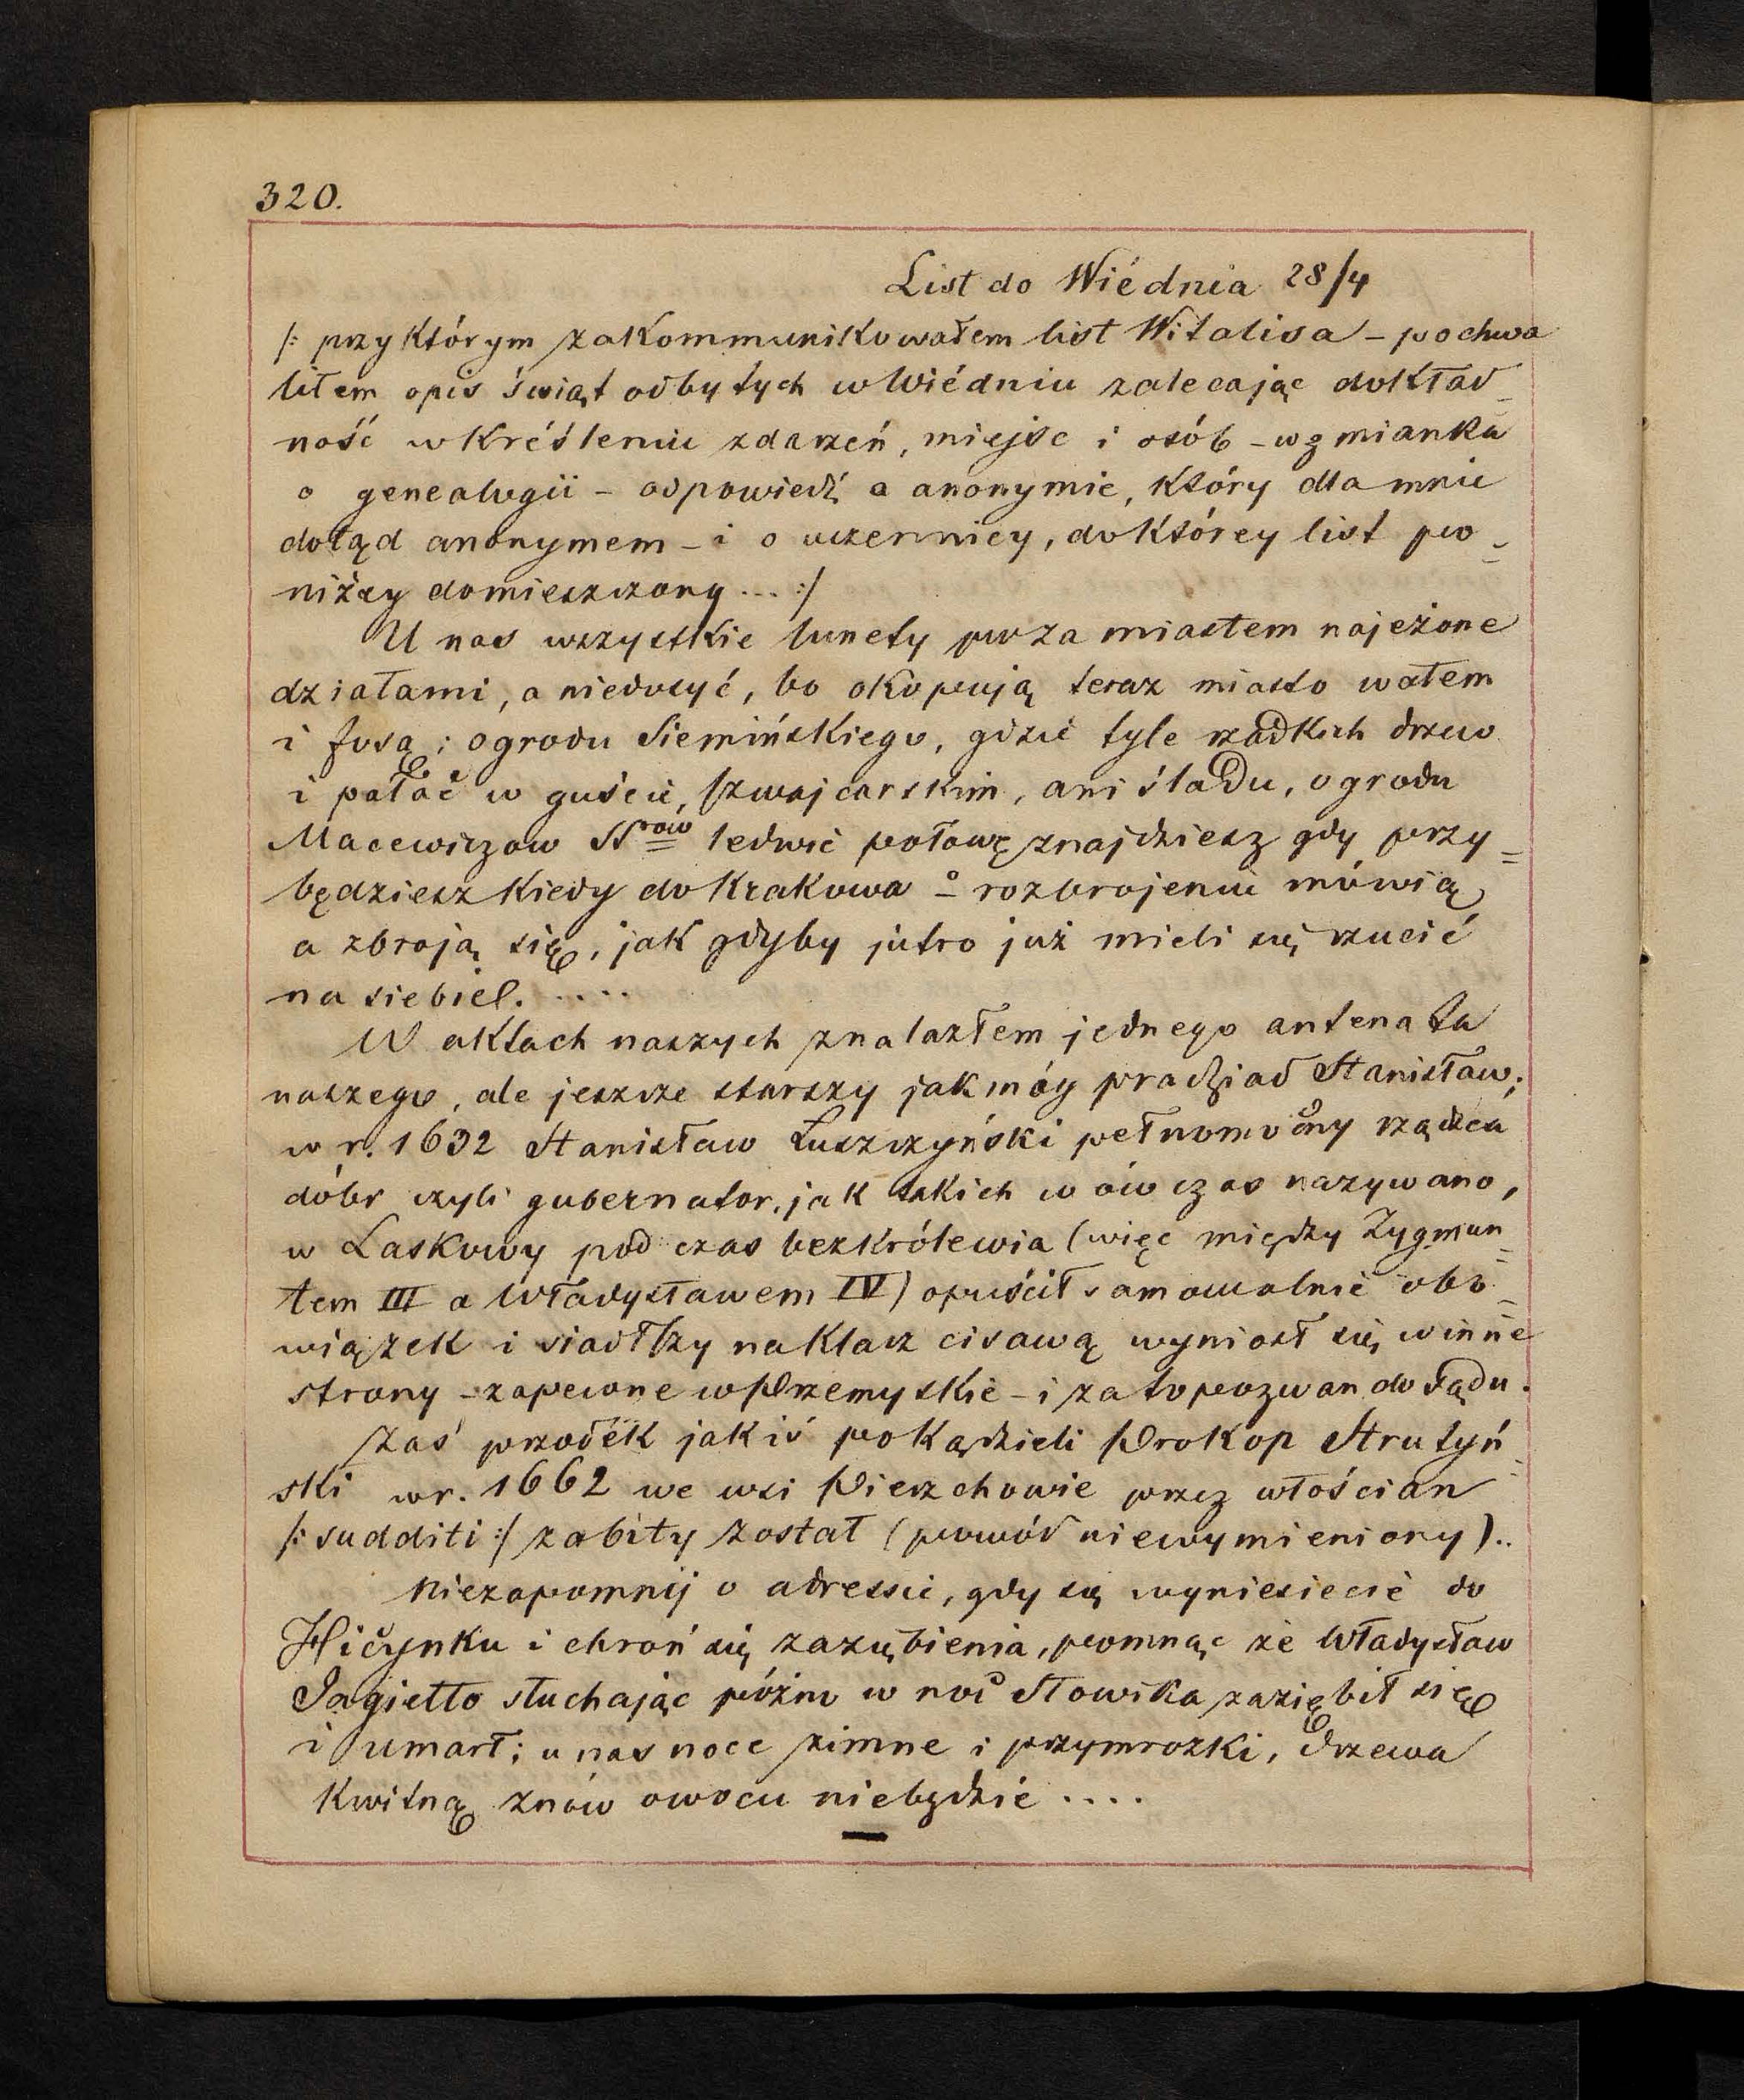 320.
List do Wiédnia 28/4
/: przy którym zakommunikowałem list Witalisa – pochwa
liłem opis świąt odbytych w Wiédniu zalecając dokład_
ność w kréśleniu zdarzeń, miejsc i osób – wzmianka
o genealogii – odpowiedź o anonymie, który dla mnie
dotąd anonymem – i o uczennicy, do którey list po_
niżey domieszczony ... :/
U nas wszystkie lunety poza miastem najeżone
działami, a niedosyć, bo okopują teraz miasto wałem
i fosą; ogrodu Siemińskiego, gdzie tyle rzadkich drzew
i pałac w guście szwajcarskim, ani śladu, ogrodu
Macewiczow SSrów ledwie połowę znajdziesz gdy przy=
będziesz kiedy do Krakowa – o rozbrojeniu mówią,
a zbroją się, jak gdyby jutro już mieli się rzucić
na siebie!. ....
W aktach naszych znalazłem jednego antenata
naszego, ale jeszcze starszy jak móy pradziad Stanisław;
w r. 1632 Stanisław Łuszczyński pełnomocny rządzca
dóbr czyli gubernator, jak takich w ówczas nazywano,
w Laskowy pod czas bezkrólewia (więc między Zygmun=
tem III a Władysławem IV) opuścił samowolnie obo=
wiązek i siadłszy na klacz cisawą wyniosł się w inne
strony – zapewne w Przemyskie – i za to pozwan do sądu.
Zaś przodek jakiś po kądzieli Prokop Strutyń=
ski w r. 1662 we wsi Pierzchowie przez włościan
/: sudditi :/ zabity został (powód niewymieniony)..
Niezapomnij o adressie, gdy się wyniesiecie do
Hicynku i chroń się zaziębienia, pomnąc że Władysław
Jagiełło słuchając późno w noc słowika zaziębił się
i umarł; u nas noce zimne i przymrozki, drzewa
kwitną znów owocu niebędzie ....